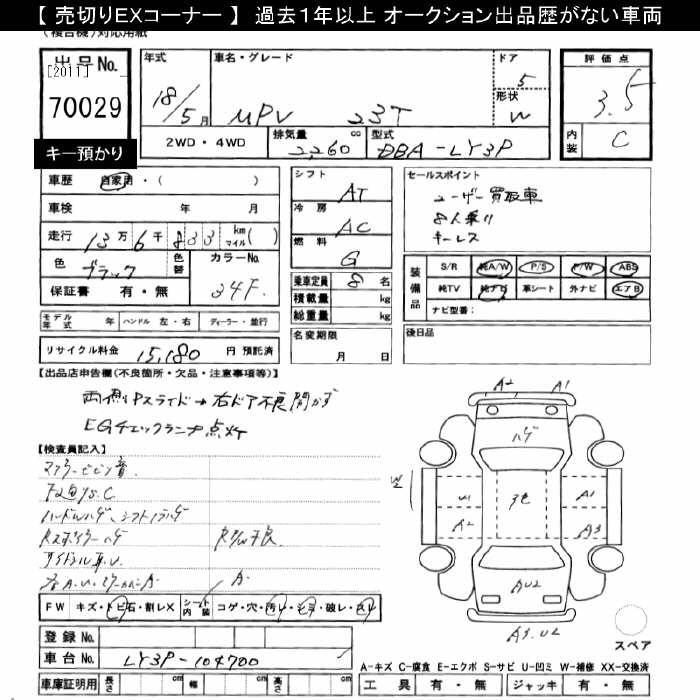 【 売切りEXコーナー 】 過去１年以上 オークション出品歴がない車両
(複合機)対応用紙
出品No.
[2011]
70029
キー預かり
年式 18/5月
車名・グレード MPV 23T
ドア 5
形状 W
評価点 3.5
内装 C
2WD・4WD 排気量 2,260 cc 型式 DBA-LY3P
車歴 自家用・( )
車検 年 月
走行 13万6千833 km マイル( )
色 ブラック 色替 カラーNo. 34F
保証書 有・無
シフト AT
冷房 AC
燃料 G
乗車定員 8 名
積載量 kg
総重量 kg
名変期限 月 日
セールスポイント
ユーザー買取車
8人乗り
キーレス
装備品
S/R 純A/W P/S P/W ABS
純TV 純ナビ 革シート 外ナビ エアB
ナビ型番：
後日品
モデル年式 年 ハンドル 左・右 ディーラー・並行
リサイクル料金 15,180 円 預託済
【出品店申告欄(不良箇所・欠品・注意事項等)】
両側Pスライド→右ドア不良開かず
EGチェックランプ点灯
【検査員記入】
A2 A1
ハゲ
A1
A2
A3
AU2
A3.U2
スペア
FW キズ・トビ石・割レX シート内装 コゲ・穴・汚レ・シミ・破レ・スレ
登録No.
車台No. LY3P-104700
車庫証明用 長さ cm 幅 cm 高さ cm
A-キズ C-腐食 E-エクボ S-サビ U-凹ミ W-補修 XX-交換済
工具 有・無 ジャッキ 有・無